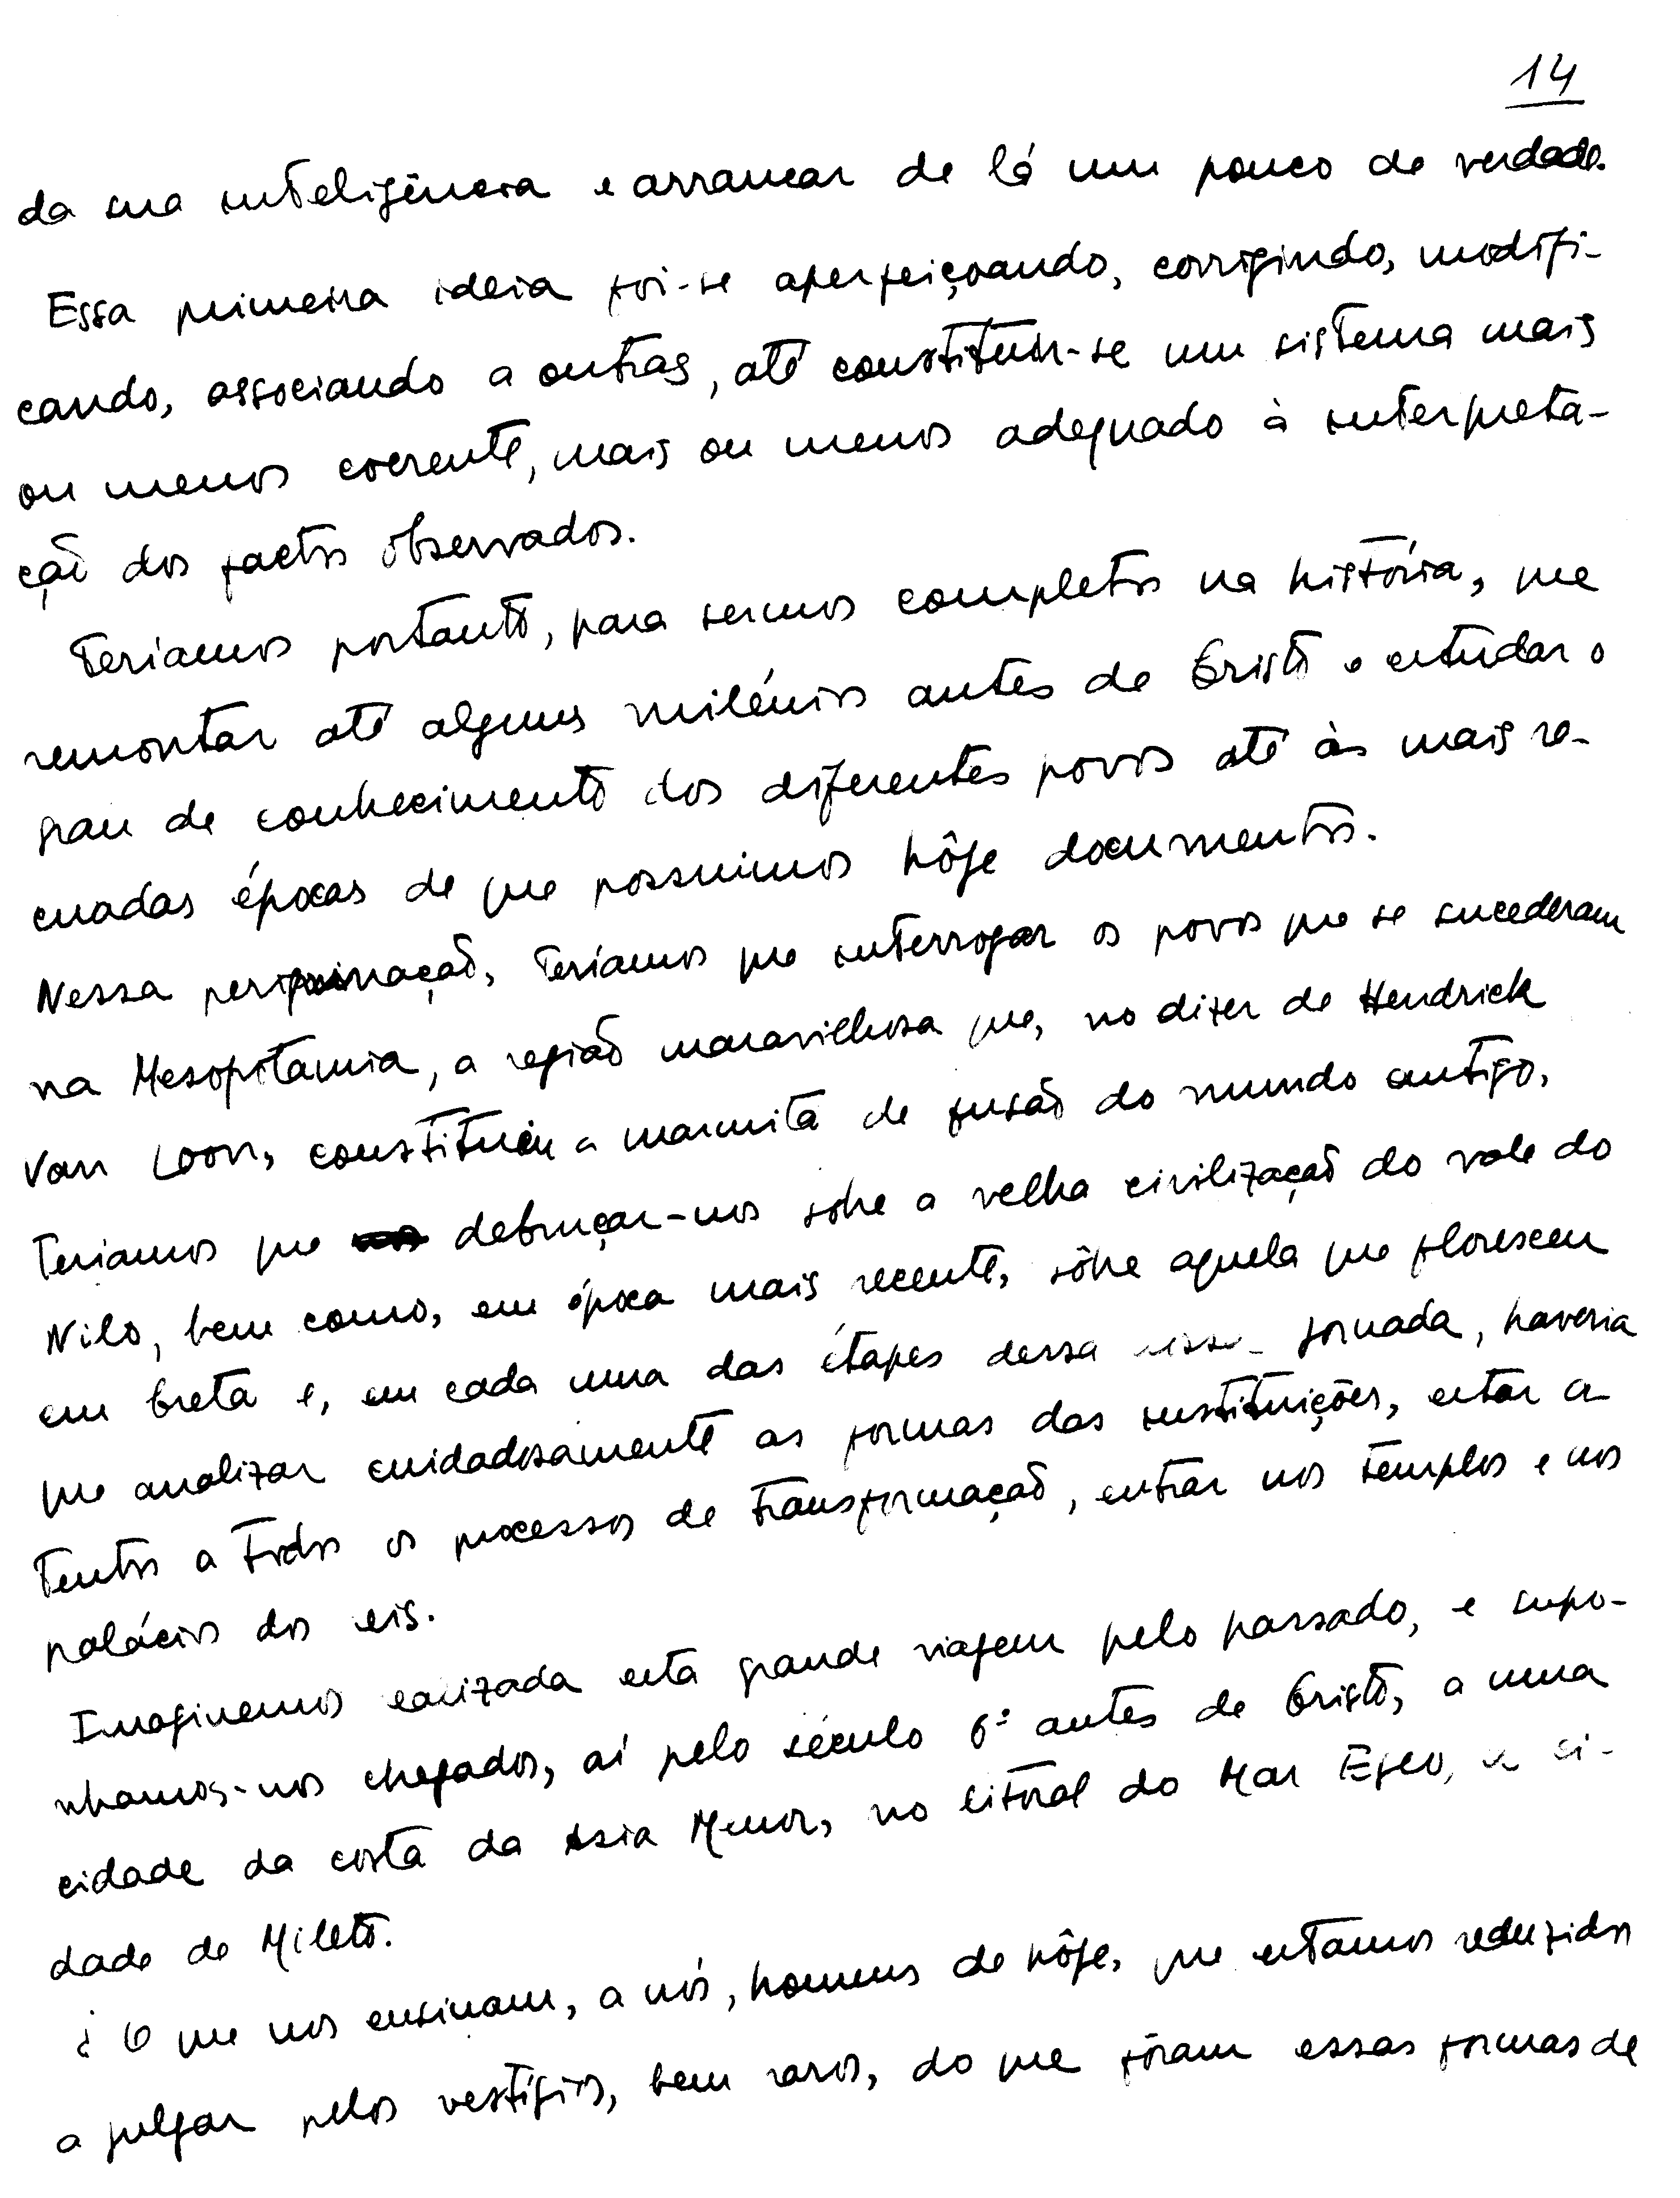 14
da sua inteligência e arrancar de lá um pouco de verdade.
Essa primeira ideia foi-se aperfeiçoando, corrigindo, modifi-
cando, associando a outras, até constituir-se um sistema mais
ou menos coerente, mais ou menos adequado à interpreta-
ção dos factos observados.
Teriamos portanto, para sermos completos na história, que
remontar até alguns milénios antes de Cristo e estudar o
grau de conhecimento dos diferentes povos até às mais re-
cuadas épocas de que possuimos hôje documentos.
Nessa perigrinação, teriamos que interrogar os povos que se sucederam
na Mesopotamia, a região maravilhosa que, no dizer de Hendrick
Van Loon, constituiu a marmita de fusão do mundo antigo.
Teriamos que debruçar-nos sobre a velha civilização do vale do
Nilo, bem como, em época mais recente, sôbre aquela que floresceu
em Creta e, em cada uma das étapes dessa jornada, haveria
que analizar cuidadosamente as formas das instituições, estar a-
tentos a todos os processos de transformação, entrar nos templos e nos
palácios dos eis.
Imaginemos ealizada esta grande viagem pelo passado, e supo-
nhamos-nos chegados, aí pelo século 6º antes de Cristo, a uma
cidade da costa da Asia Menor, no litoral do Mar Egeo, a ci-
dade de Mileto.
¿ O que nos ensinam, a nós, homens de hôje, que estamos reduzidos
a julgar pelos vestígios, bem raros, do que fôram essas formas de